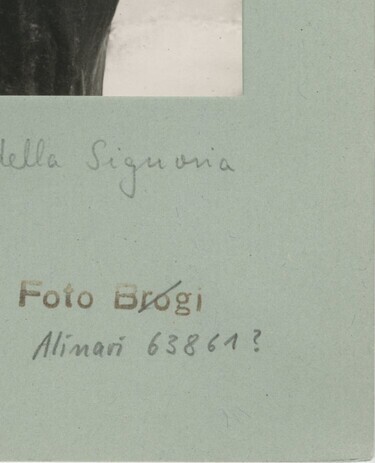 della Signoria
Foto Brogi
Alinari 63861?